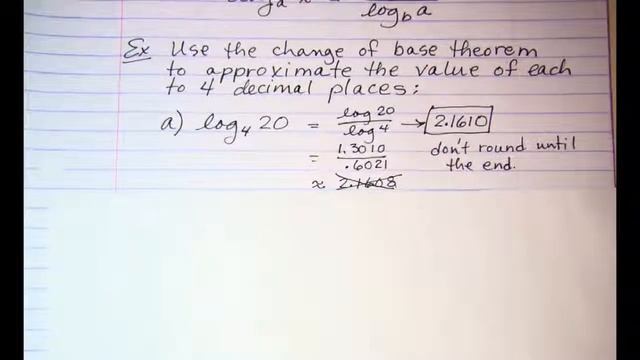 log_b a
Ex Use the change of base theorem
to approximate the value of each
to 4 decimal places:
a) log₄ 20 = log 20 / log 4 → 2.1610
= 1.3010 / .6021 don't round until
the end.
≈ 2.1608